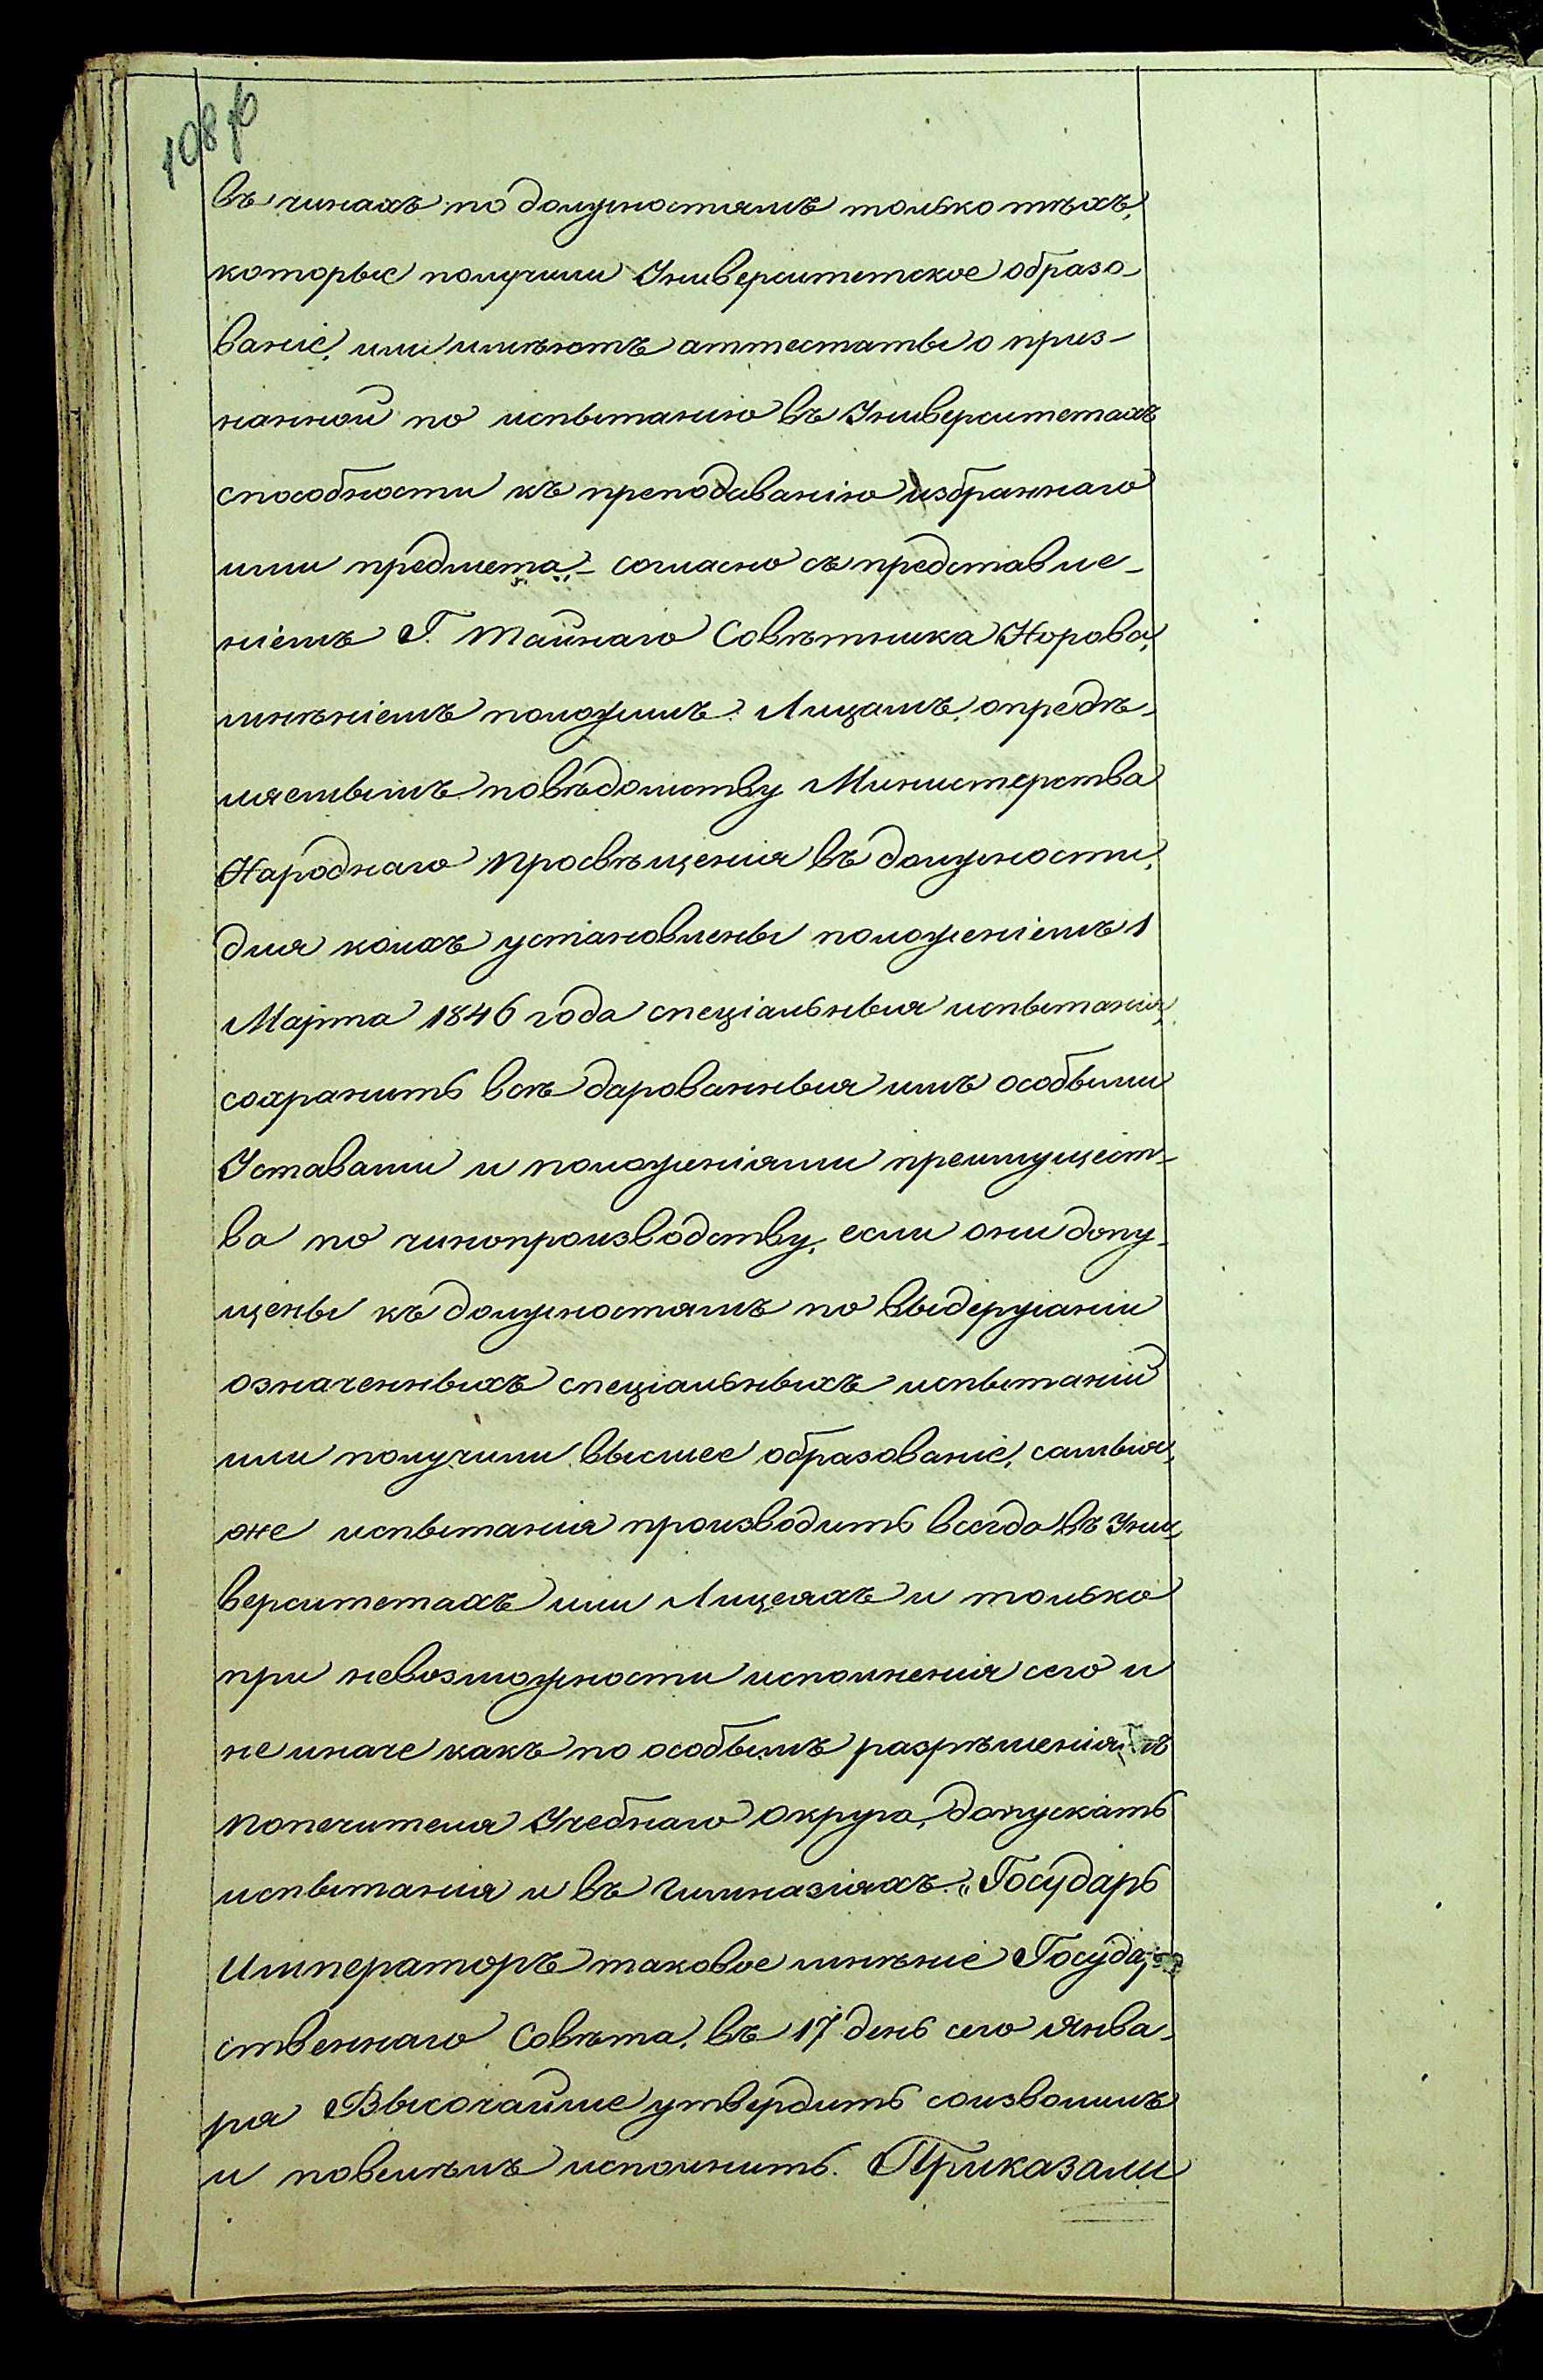 108 об
въ чинахъ по должностямъ только тѣхъ,
которые получили Университетское образо-
ваніе, или имѣютъ аттестаты о приз-
нанной по испытанію въ Университетахъ
способности къ преподаванію избраннаго
ими предмета,- согласно съ представле-
ніемъ Г. Тайнаго Совѣтника Норова,
мнѣніемъ положилъ: Лицамъ, опредѣ-
ляемымъ по вѣдомству Министерства
Народнаго Просвѣщенія въ должности,
для коихъ установлены положеніемъ 1
Марта 1846 года спеціальныя испытанія,
сохранить всѣ дарованныя имъ особыми
Уставами и положеніями преимущест-
ва по чинопроизводству, если они допу-
щены къ должностямъ по выдержаніи
означенныхъ спеціальныхъ испытаній
или получили высшее образованіе, самыя
же испытанія производить всегда въ Уни-
верситетахъ или Лицеяхъ и только
при невозможности исполненія сего и
не иначе какъ по особымъ разрѣшеніямъ
Попечителя Учебнаго Округа, допускать
испытанія и въ Гимназіяхъ." Государь
Императоръ таковое мнѣніе Государ-
ственнаго Совѣта, въ 17 день сего Янва-
ря Высочайше утвердить соизволилъ
и повелѣлъ исполнить. Приказали